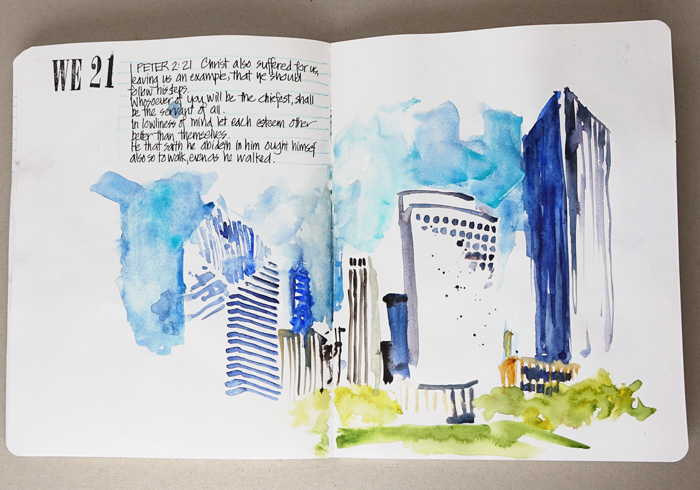 WE 21
I PETER 2:21 Christ also suffered for us,
leaving us an example, that ye should
follow his steps.
Whosoever of you will be the chiefest, shall
be the servant of all.
In lowliness of mind let each esteem other
better than themselves.
He that saith he abideth in him ought himself
also so to walk, even as he walked.